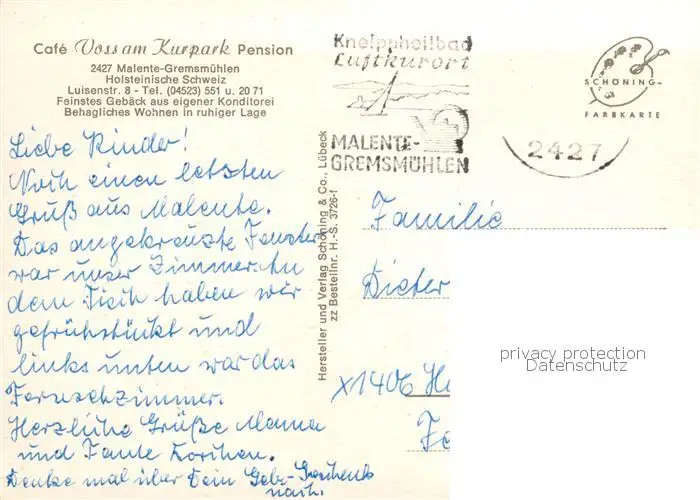 Café Voss am Kurpark Pension
2427 Malente-Gremsmühlen
Holsteinische Schweiz
Luisenstr. 8 - Tel. (04523) 551 u. 20 71
Feinstes Gebäck aus eigener Konditorei
Behagliches Wohnen in ruhiger Lage
Liebe Kinder!
Noch einen letzten
Gruß aus Malente.
Das angekreuzte Fenster
war unser Zimmer. An
dem Tisch haben wir
gefrühstückt und
links unten war das
Fernsehzimmer.
Herzliche Grüße Mama
und Tante
Denke mal über Dein Geb.-Geschenk
nach.
Hersteller und Verlag Schöning & Co., Lübeck
zz Bestellnr. H.-S. 3726-f
Kneippheilbad
Luftkurort
MALENTE-
GREMSMÜHLEN
2427
SCHÖNING-
FARBKARTE
Familie
Dieter
x1406 H
privacy protection
Datenschutz